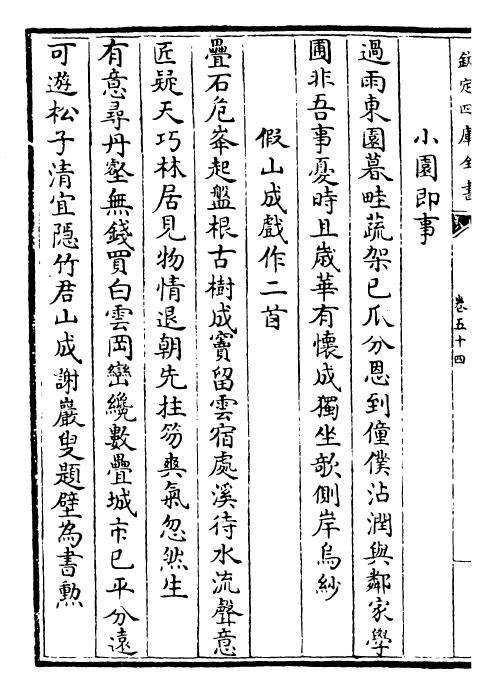 欽定四庫全書
卷五十四
小園即事
過雨東園暮畦蔬架已瓜分恩到僮僕沾潤與鄰家學
圃非吾事憂時且歲華有懷成獨坐歌側岸烏紗
假山成戲作二首
疊石危峯起盤根古樹成竇留雲宿處溪待水流聲意
匠疑天巧林居見物情退朝先拄笏爽氣忽然生
有意尋丹壑無錢買白雲岡巒纔數疊城市已平分遠
可遊松子清宜隱竹君山成謝巖叟題壁為書勲